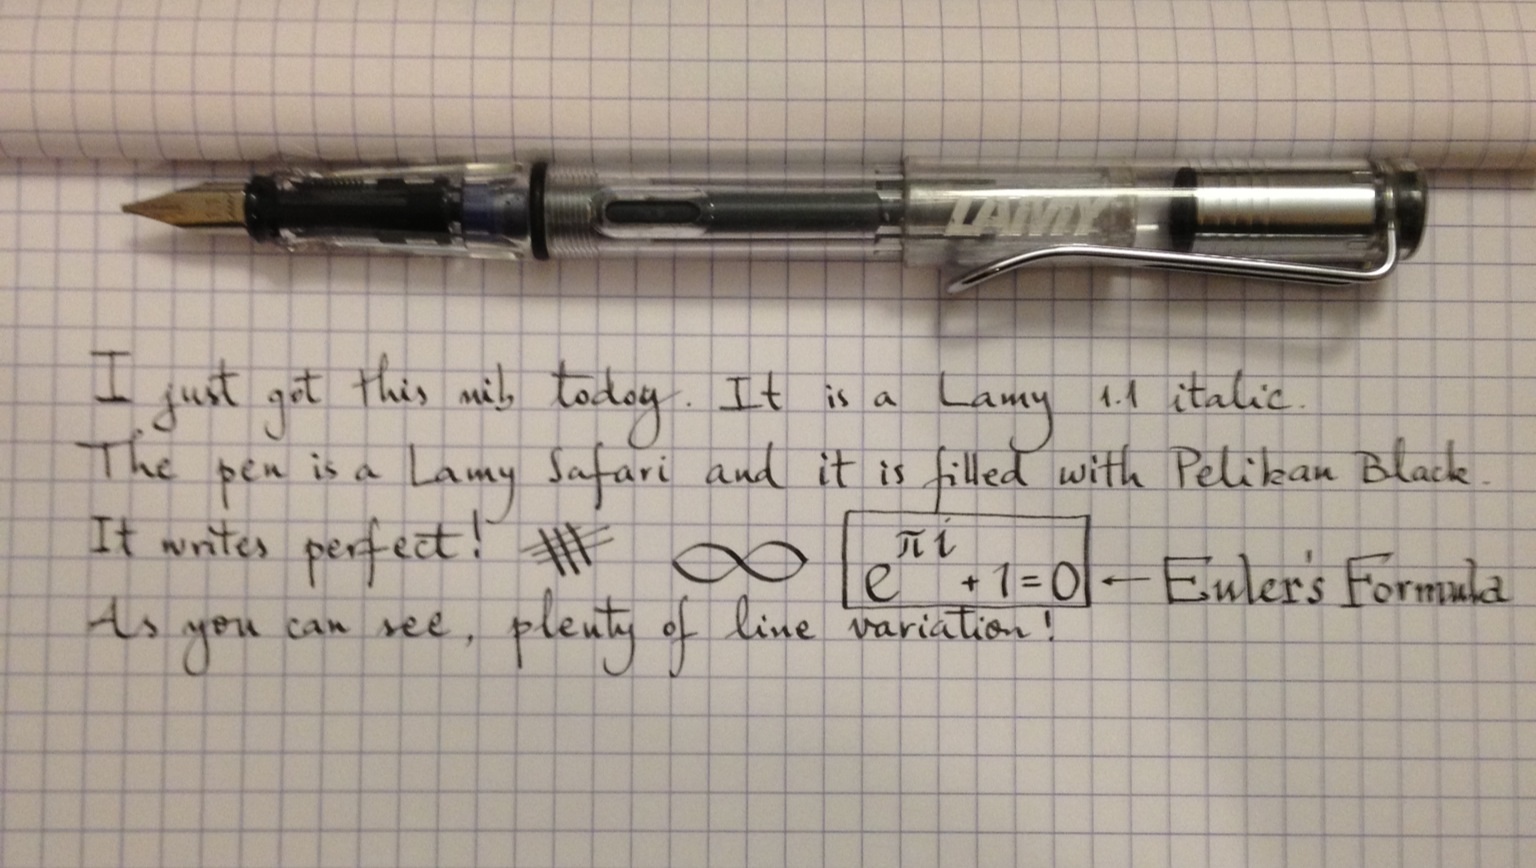 LAMY
I just got this nib today. It is a Lamy 1.1 italic.
The pen is a Lamy Safari and it is filled with Pelikan Black.
It writes perfect! ∞ e^{πi} + 1 = 0 ← Euler's Formula
As you can see, plenty of line variation!